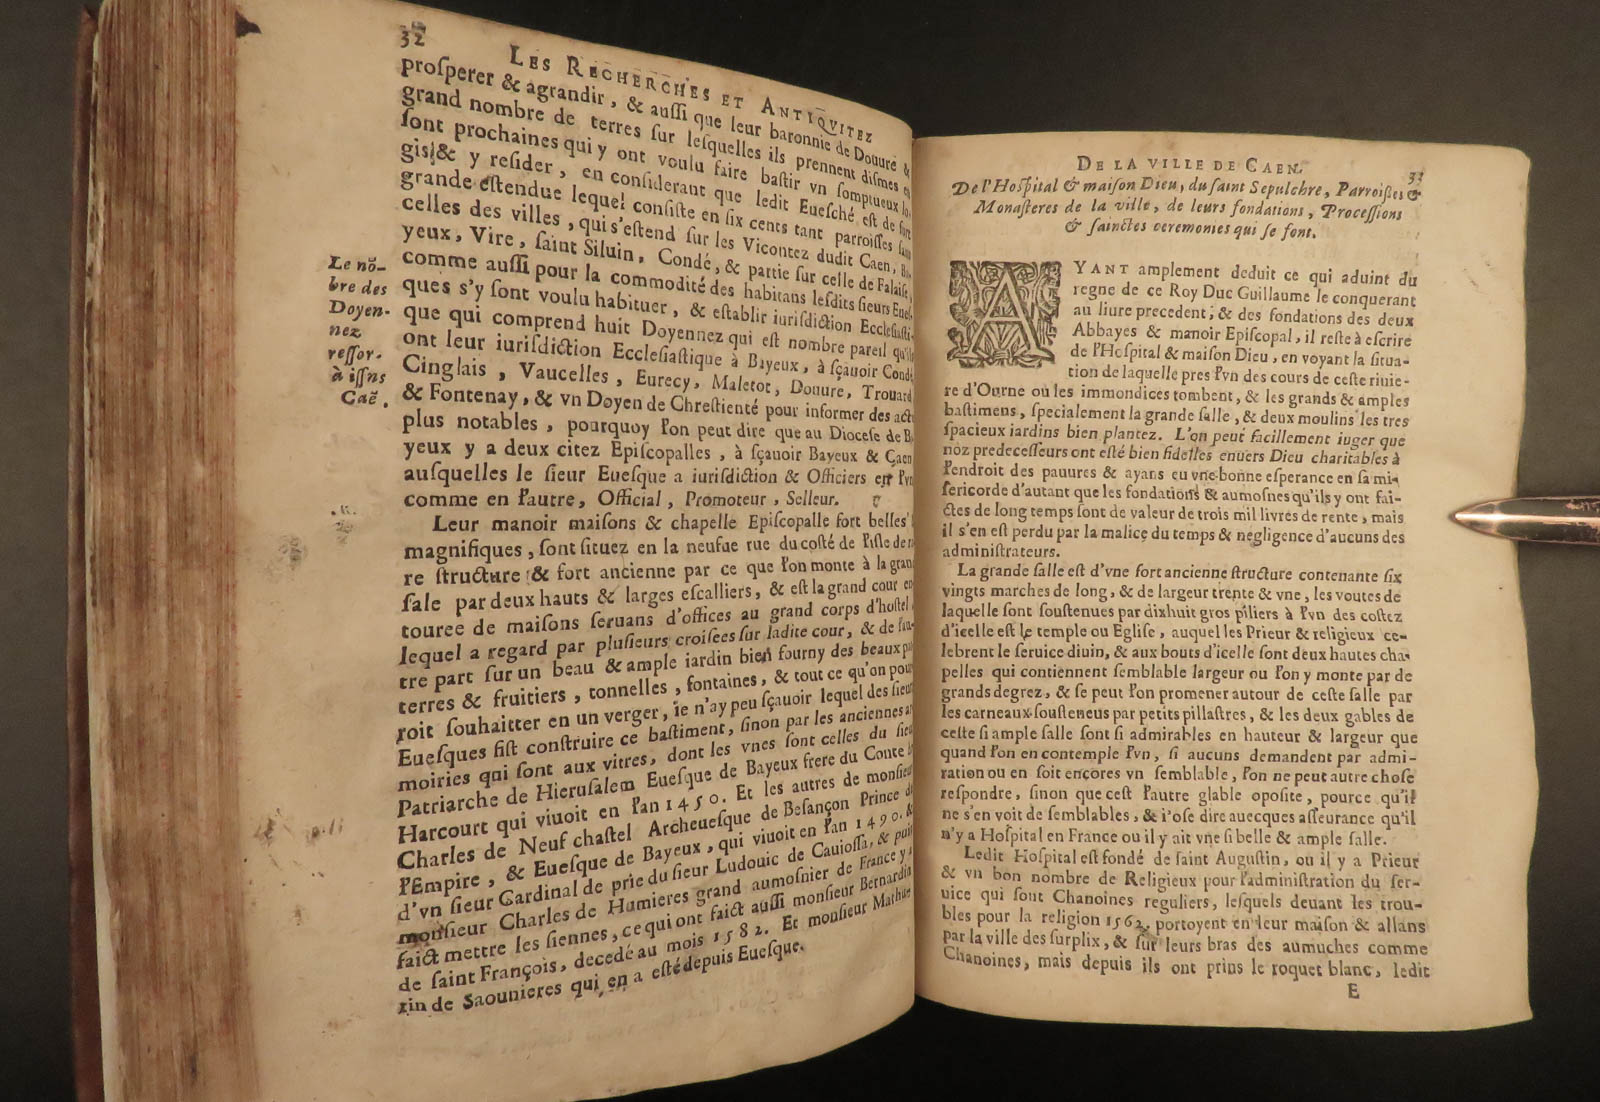 32
LES RECHERCHES ET ANTIQVITEZ
prosperer & agrandir, & aussi que leur baronnie de Douure &
grand nombre de terres sur lesquelles ils prennent dismes en
sont prochaines qui y ont voulu faire bastir vn somptueux lo-
gis, & y resider, en considerant que ledit Euesché est de fort
grande estendue lequel consiste en six cents tant parroisses sans
celles des villes, qui s'estend sur les Vicontez dudit Caen, Ba-
yeux, Vire, saint Siluin, Condé, & partie sur celle de Falaise,
comme aussi pour la commodité des habitans lesdits sieurs Eues-
ques s'y sont voulu habituer, & establir iurisdiction Ecclesiasti-
que qui comprend huit Doyennez qui est nombre pareil qu'ils
ont leur iurisdiction Ecclesiastique à Bayeux, à sçauoir Condé
Cinglais, Vaucelles, Eurecy, Maletot, Douure, Trouard
& Fontenay, & vn Doyen de Chrestienté pour informer des act
plus notables, pourquoy l'on peut dire que au Diocese de B
yeux y a deux citez Episcopalles, à sçauoir Bayeux & Caen
ausquelles le sieur Euesque a iurisdiction & Officiers en l'vn
comme en l'autre, Official, Promoteur, Selleur.
Le nõ-
bre des
Doyen-
nez
ressor-
Caẽ.
Leur manoir maisons & chapelle Episcopalle fort belles
magnifiques, sont situez en la neufue rue du costé de l'isle de
re structure & fort ancienne par ce que l'on monte à la gran
sale par deux hauts & larges escalliers, & est la grand cour en
touree de maisons seruans d'offices au grand corps d'hostel,
lequel a regard par plusieurs croisees sur ladite cour, & de l'au-
tre part sur un beau & ample iardin bien fourny des beaux
terres & fruitiers, tonnelles, fontaines, & tout ce qu'on pour
roit souhaitter en un verger, ie n'ay peu sçauoir lequel des sieurs
Euesques fist construire ce bastiment, sinon par les anciennes ar
moiries qui sont aux vitres, dont les vnes sont celles du sieur
Patriarche de Hierusalem Euesque de Bayeux frere du Conte
Harcourt qui viuoit en l'an 1450. Et les autres de monsieur
Charles de Neuf chastel Archeuesque de Besançon Prince de
l'Empire, & Euesque de Bayeux, qui viuoit en l'an 1490. &
d'vn sieur Cardinal de prie du sieur Ludouic de Cauiossa, & puis
monsieur Charles de Humieres grand aumosnier de France y a
faict mettre les siennes, ce qui ont faict aussi monsieur Bernardin
de saint François, decedé au mois 1582. Et monsieur Mathu
rin de Saounieres qui en a esté depuis Euesque.
DE LA VILLE DE CAEN.
33
De l'Hospital & maison Dieu, du saint Sepulchre, Parroisses &
Monasteres de la ville, de leurs fondations, Processions
& sainctes ceremonies qui se font.
AYANT amplement deduit ce qui aduint du
regne de ce Roy Duc Guillaume le conquerant
au liure precedent, & des fondations des deux
Abbayes & manoir Episcopal, il reste à escrire
de l'Hospital & maison Dieu, en voyant la situa-
tion de laquelle pres l'vn des cours de ceste riuie-
re d'Ourne ou les immondices tombent, & les grands & amples
bastimens, specialement la grande salle, & deux moulins les tres
spacieux iardins bien plantez. L'on peut facillement iuger que
noz predecesseurs ont esté bien fidelles enuers Dieu charitables à
l'endroit des pauures & ayans eu vne bonne esperance en sa mi-
sericorde d'autant que les fondations & aumosnes qu'ils y ont fai-
ctes de long temps sont de valeur de trois mil liures de rente, mais
il s'en est perdu par la malice du temps & negligence d'aucuns des
administrateurs.
La grande salle est d'vne fort ancienne structure contenante six
vingts marches de long, & de largeur trente & vne, les voutes de
laquelle sont soustenues par dixhuit gros piliers à l'vn des costez
d'icelle est le temple ou Eglise, auquel les Prieur & religieux ce-
lebrent le seruice diuin, & aux bouts d'icelle sont deux hautes cha-
pelles qui contiennent semblable largeur ou l'on y monte par de
grands degrez, & se peut l'on promener autour de ceste salle par
les carneaux sousteneus par petits pillastres, & les deux gables de
ceste si ample salle sont si admirables en hauteur & largeur que
quand l'on en contemple l'vn, si aucuns demandent par admi-
ration ou en soit encores vn semblable, l'on ne peut autre chose
respondre, sinon que cest l'autre glable oposite, pource qu'il
ne s'en voit de semblables, & i'ose dire auecques asseurance qu'il
n'y a Hospital en France ou il y ait vne si belle & ample salle.
Ledit Hospital est fondé de saint Augustin, ou il y a Prieur
& vn bon nombre de Religieux pour l'administration du ser-
uice qui sont Chanoines reguliers, lesquels deuant les trou-
bles pour la religion 1562, portoyent en leur maison & allans
par la ville des surplix, & sur leurs bras des aumuches comme
Chanoines, mais depuis ils ont prins le roquet blanc, ledit
E